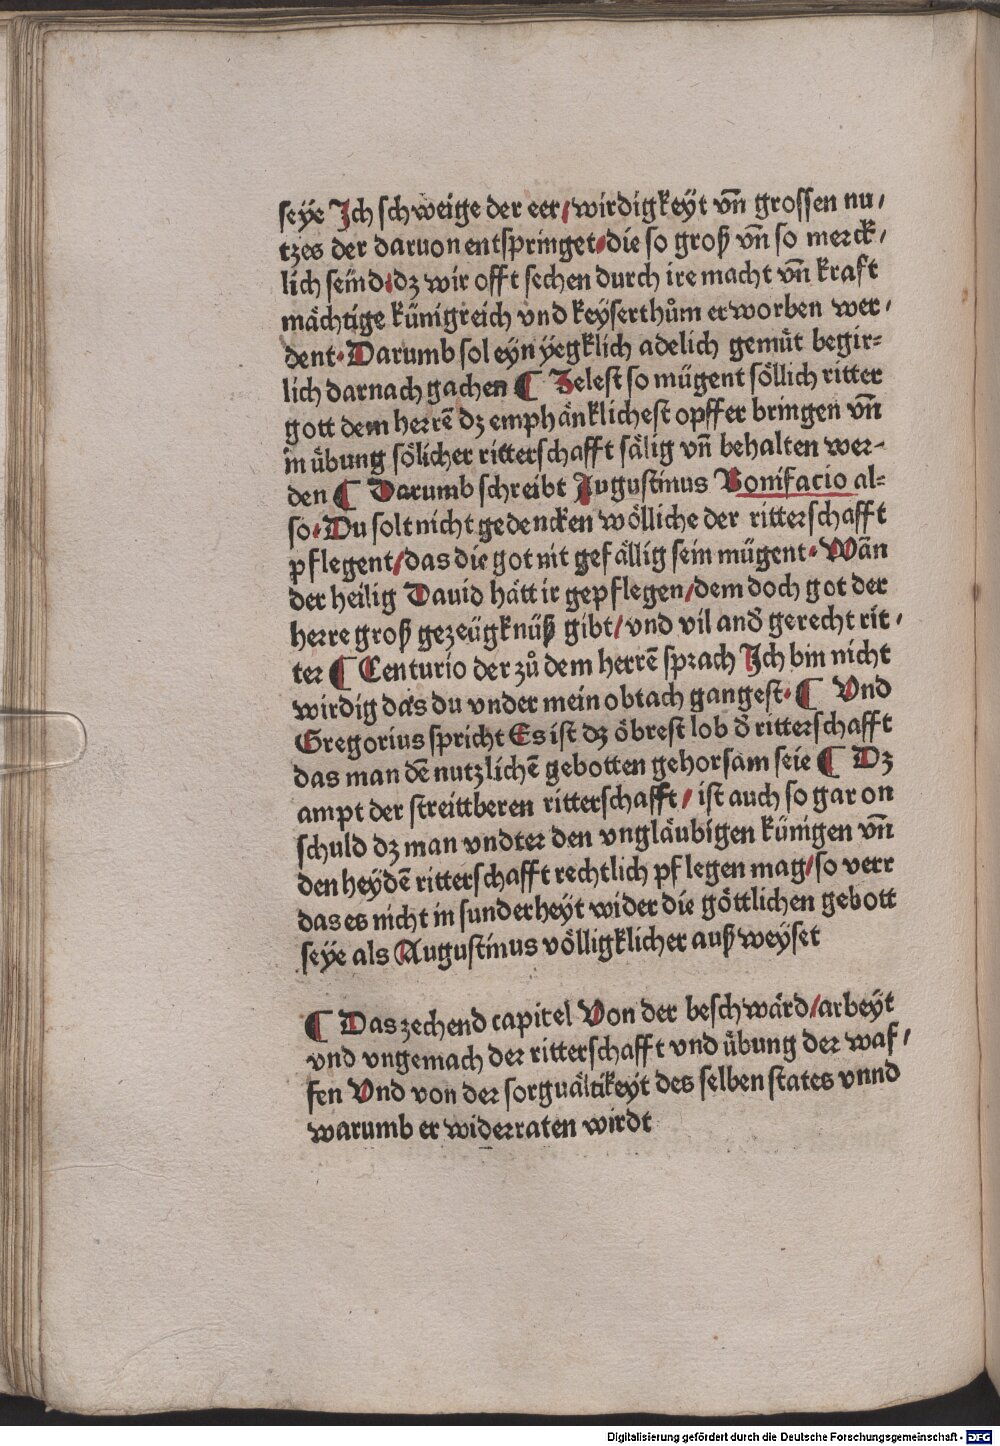 seÿe Jch schweige der eer/wirdigkeÿt vn̄ grossen nu/
tzes der daruon entspringet/die so groß vn̄ so merck/
lich seind/dz wir offt sechen durch ire macht vn̄ kraft
mächtige künigreich vnd keÿserthům erworben wer/
dent·Darumb sol eyn ÿegklich adelich gemüt begir-
lich darnach gachen ¶ Zelest so mügent söllich ritter
gott dem herrē dz emphänklichest opffer bringen vn̄
in übung sölicher ritterschafft sälig vn̄ behalten wer-
den ¶ Darumb schreibt Augustinus Bonifacio al-
so·Du solt nicht gedencken wölliche der ritterschafft
pflegent/das die got nit gefällig sein mügent·Wān
der heilig Dauid hätt ir gepflegen/dem doch got der
herre groß gezeügknüß gibt/vnd vil and̄ gerecht rit/
ter ¶ Centurio der zů dem herrē sprach Jch bin nicht
wirdig das du vnder mein obtach gangest·¶ Vnd
Gregorius spricht Es ist dz öbrest lob d̄ ritterschafft
das man dē nutzlichē gebotten gehorsam seie ¶ Dz
ampt der streittberen ritterschafft/ ist auch so gar on
schuld dz man vndter den vngläubigen künigen vn̄
den heÿdē ritterschafft rechtlich pflegen mag/so verr
das es nicht in sunderheÿt wider die göttlichen gebott
seÿe als Augustinus völligklicher auß weÿset
¶ Das zechend capitel Von der beschwärd/arbeÿt
vnd vngemach der ritterschafft vnd übung der waf/
fen Vnd von der sorguältikeÿt des selben states vnnd
warumb er widerraten wirdt
Digitalisierung gefördert durch die Deutsche Forschungsgemeinschaft - DFG